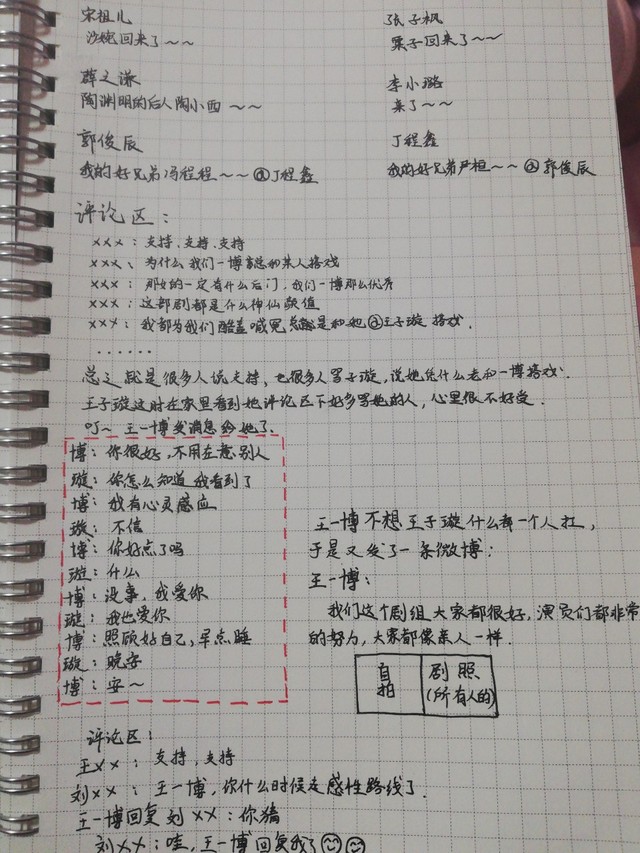 宋祖儿
沙婉回来了～～
张子枫
栗子回来了～～
薛之谦
陶渊明的后人陶小西～～
李小璐
来了～～
郭俊辰
我的好兄弟冯程程～～@丁程鑫
丁程鑫
我的好兄弟严桓～～@郭俊辰
评论区：
×××：支持、支持、支持
×××、为什么我们一博总和某人搭戏
×××：那女的一定有什么后门，我们一博那么优秀
×××：这部剧都是什么神仙颜值
×××：我都为我们酷盖喊冤总是和她@王子璇 搭戏.
......
总之就是很多人说支持，也很多人骂子璇，说她凭什么去和一博搭戏.
王子璇这时在家里看到她评论区下好多骂她的人，心里很不好受.
叮～ 王一博发消息给她了.
博：你很好，不用在意别人
璇：你怎么知道我看到了
博：我有心灵感应
璇：不信
博：你好点了吗
璇：什么
博：没事，我爱你
璇：我也爱你
博：照顾好自己，早点睡
璇：晚安
博：安～
王一博不想王子璇什么都一个人扛，
于是又发了一条微博：
王一博：
我们这个剧组大家都很好，演员们都非常
的努力，大家都像亲人一样.
自拍
剧照
(所有人的)
评论区：
王××：支持，支持
刘××：王一博，你什么时候走感性路线了.
王一博回复刘××：你猜
刘××：哇，王一博回复我了